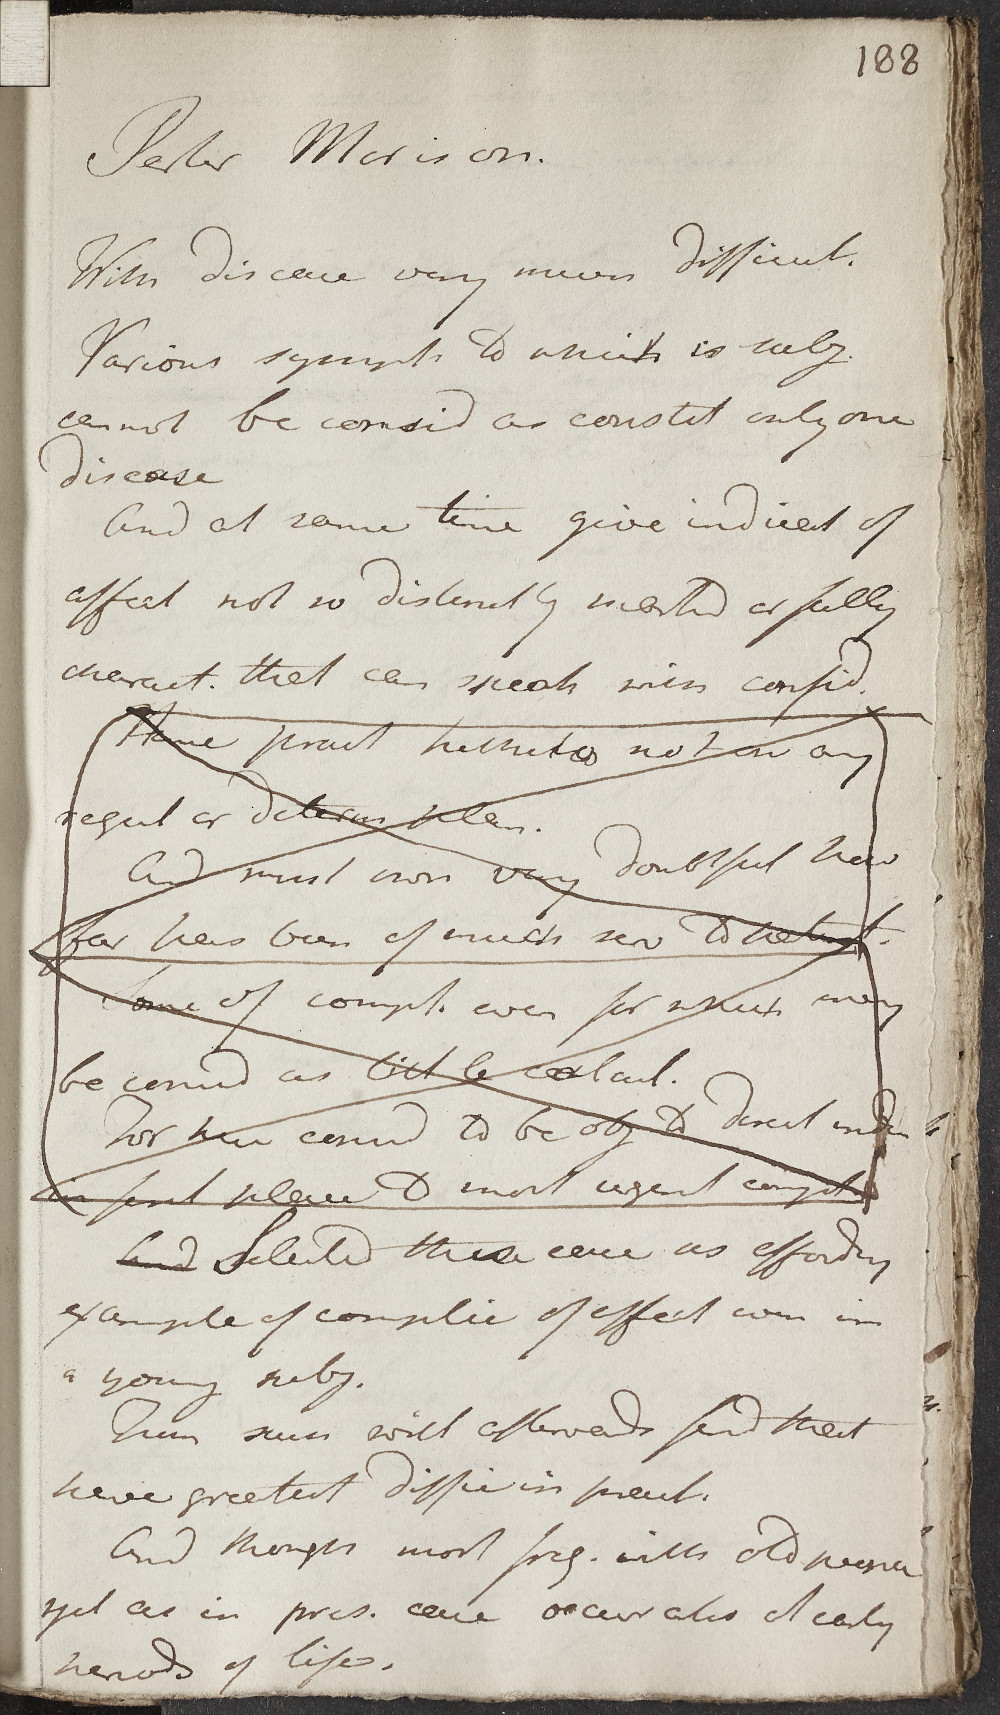 188
Peter Morison.
With disease very much difficult.
Various sympt to which is subj.
cannot be consid as constit only one
disease
And at same time give indicat of
affect not so distinctly marked or fully
charact. that can speak with confid.
Have pract hitherto not on any
regul or determ plan.
And must own very doubtful how
far has been of much serv to patient.
Some of compl. even for which may
be consid as little calcul.
For have consid to be obj to direct
in first place to most urgent compl
And Selected these case as affording
example of complic of affect even in
a young subj.
Such will afterwards find that
have greatest diffic in pract.
And though most freq. with old
yet as in pres. case occur also at early
periods of life.